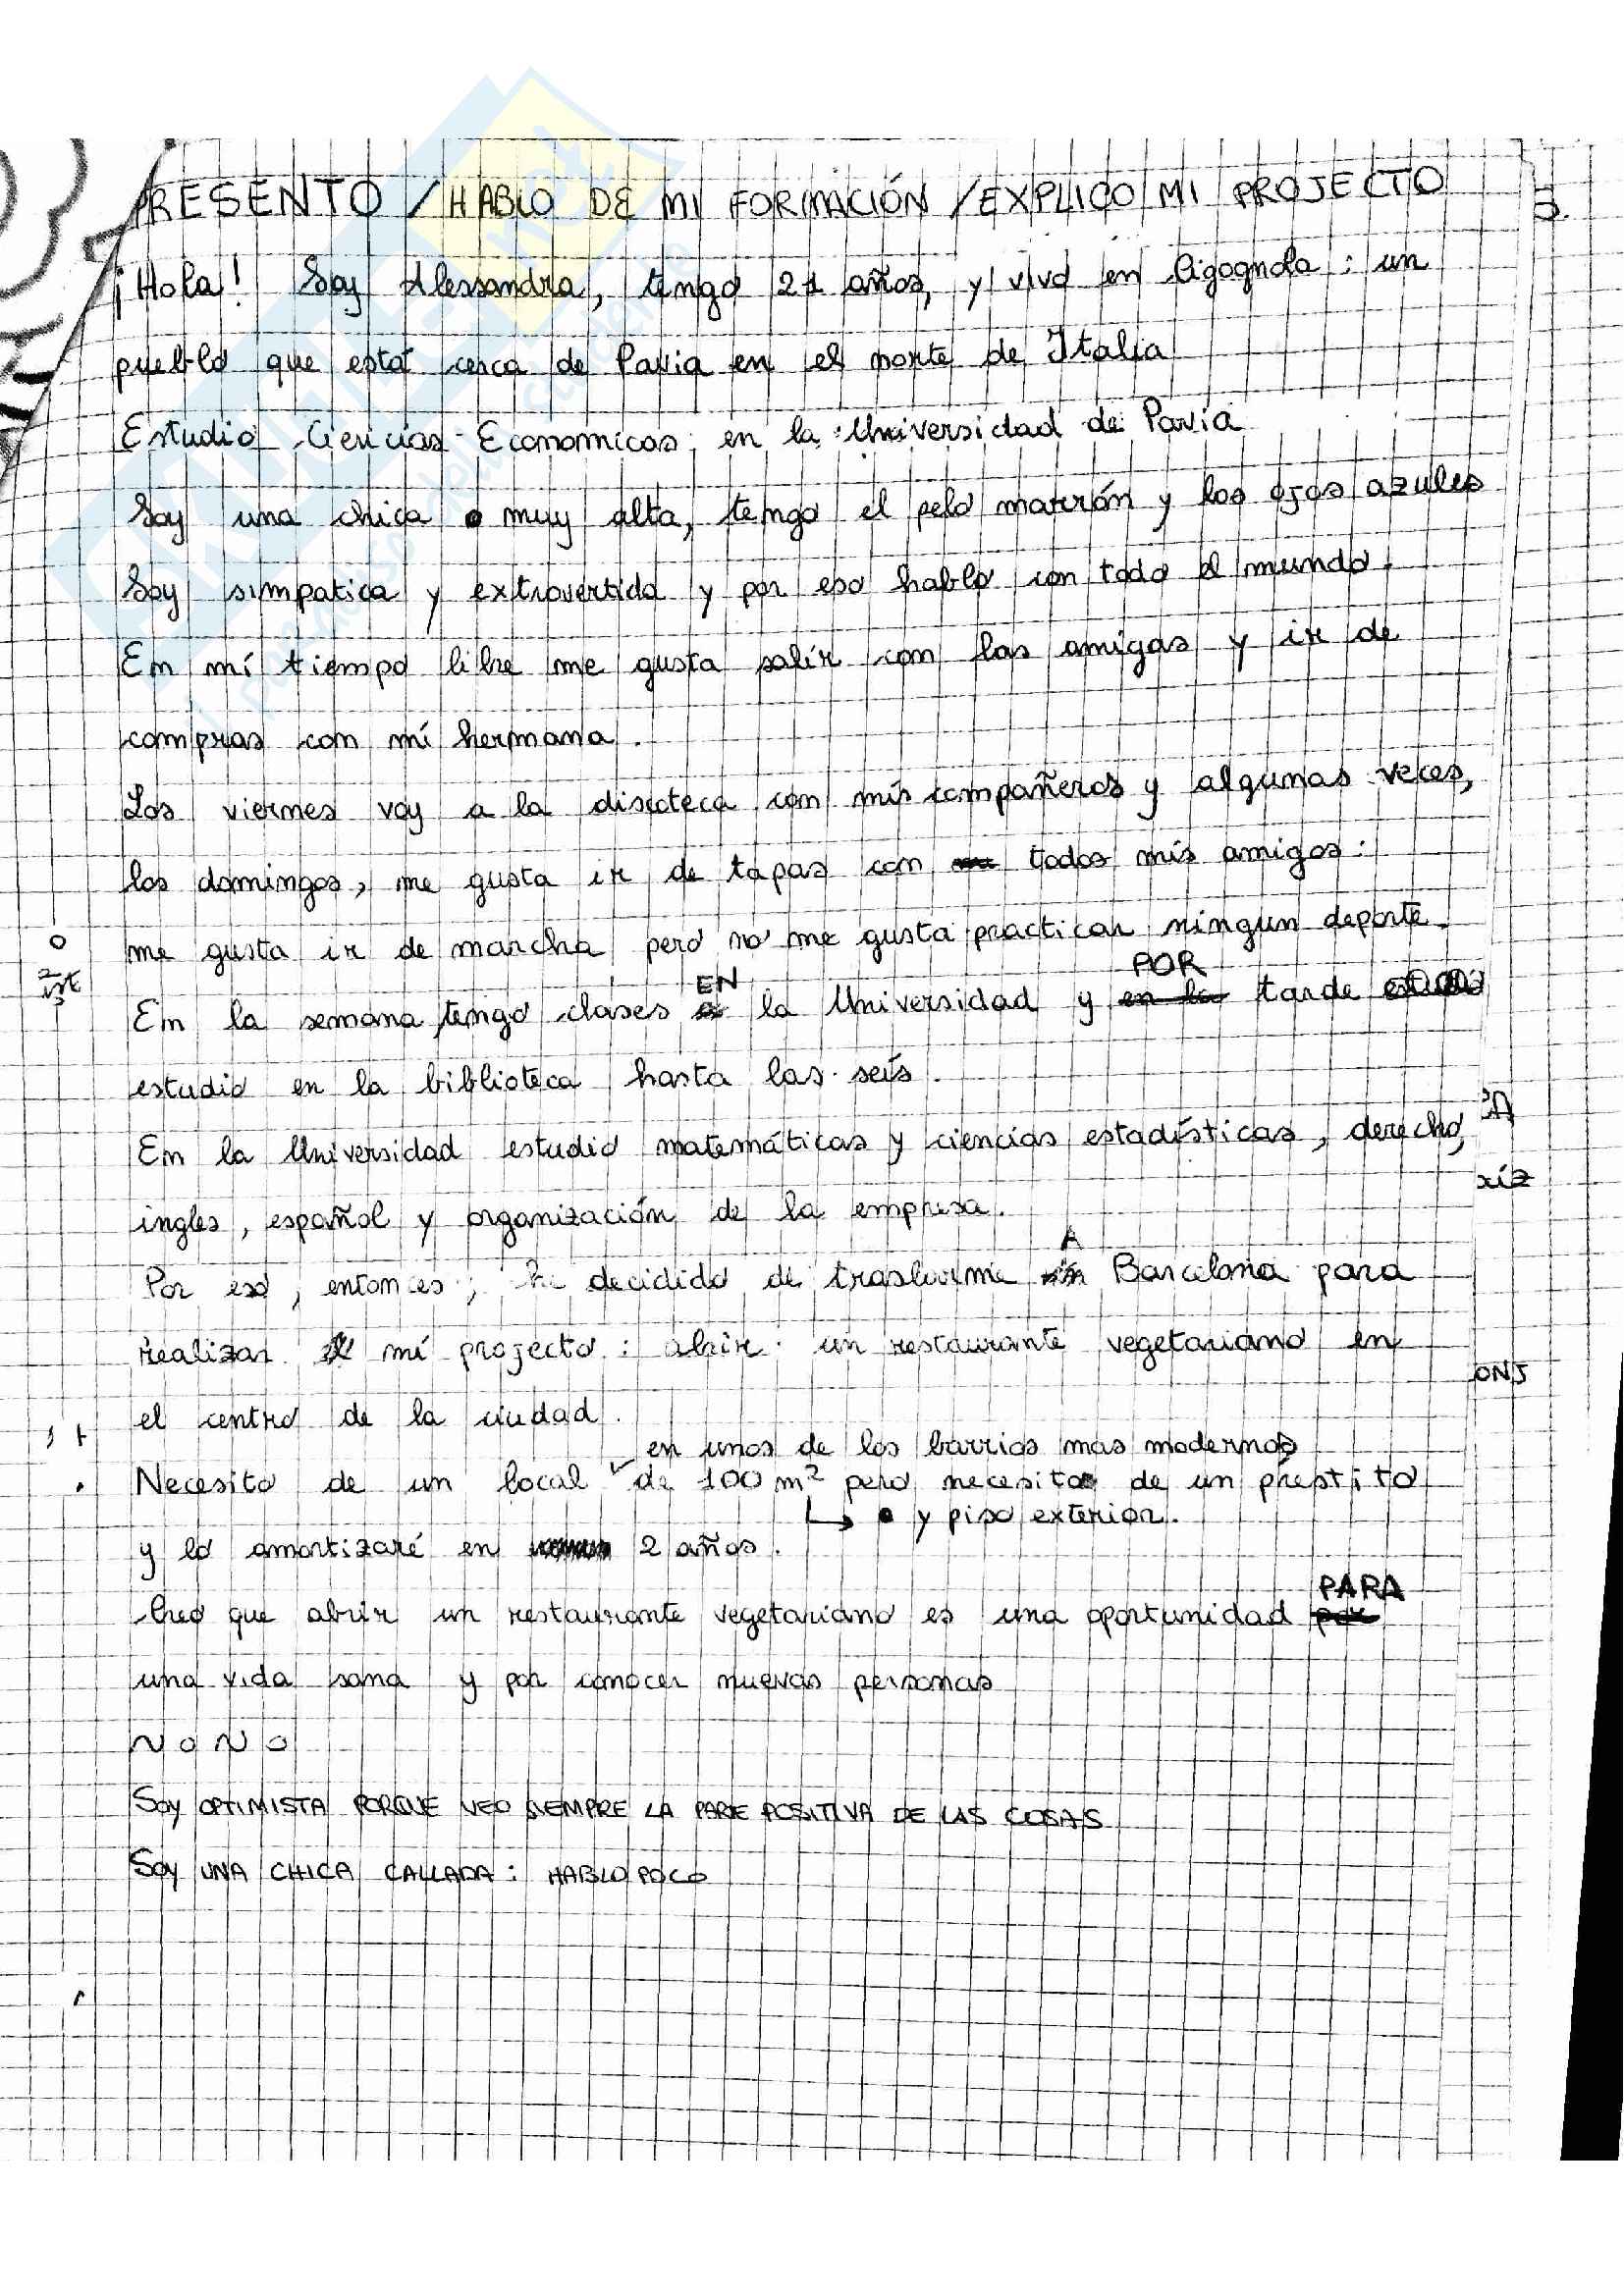 PRESENTO / HABLO DE MI FORMACIÓN / EXPLICO MI PROJECTO
¡Hola! Soy Alessandra, tengo 21 años, y vivo en Cigognola: un
pueblo que está cerca de Pavia en el norte de Italia
Estudio Ciencias Economicas en la Universidad de Pavia
Soy una chica muy alta, tengo el pelo marrón y los ojos azules
Soy simpatica y extrovertida y por eso hablo con todo el mundo.
En mi tiempo libre me gusta salir con las amigas y ir de
compras con mi hermana.
Los viernes voy a la discoteca con mis compañeros y algunas veces,
los domingos, me gusta ir de tapas con todos mis amigos:
me gusta ir de marcha pero no me gusta practicar ningun deporte.
EN POR
En la semana tengo clases la Universidad y en la tarde
estudio en la biblioteca hasta las seis.
En la Universidad estudio matemáticas y ciencias estadísticas, derecho,
ingles, español y organización de la empresa.
A
Por eso, entonces, he decidido de traslarme Barcelona para
realizar mi projecto: abrir un restaurante vegetariano en
el centro de la ciudad.
en unos de los barrios mas modernos
Necesito de un local de 100 m² pero necesito de un préstito
y piso exterior.
y lo amortizaré en 2 años.
PARA
Creo que abrir un restaurante vegetariano es una oportunidad por
una vida sana y por conocer nuevas personas
Soy OPTIMISTA PORQUE VEO SIEMPRE LA PARTE POSITIVA DE LAS COSAS
Soy UNA CHICA CALLADA: HABLO POCO